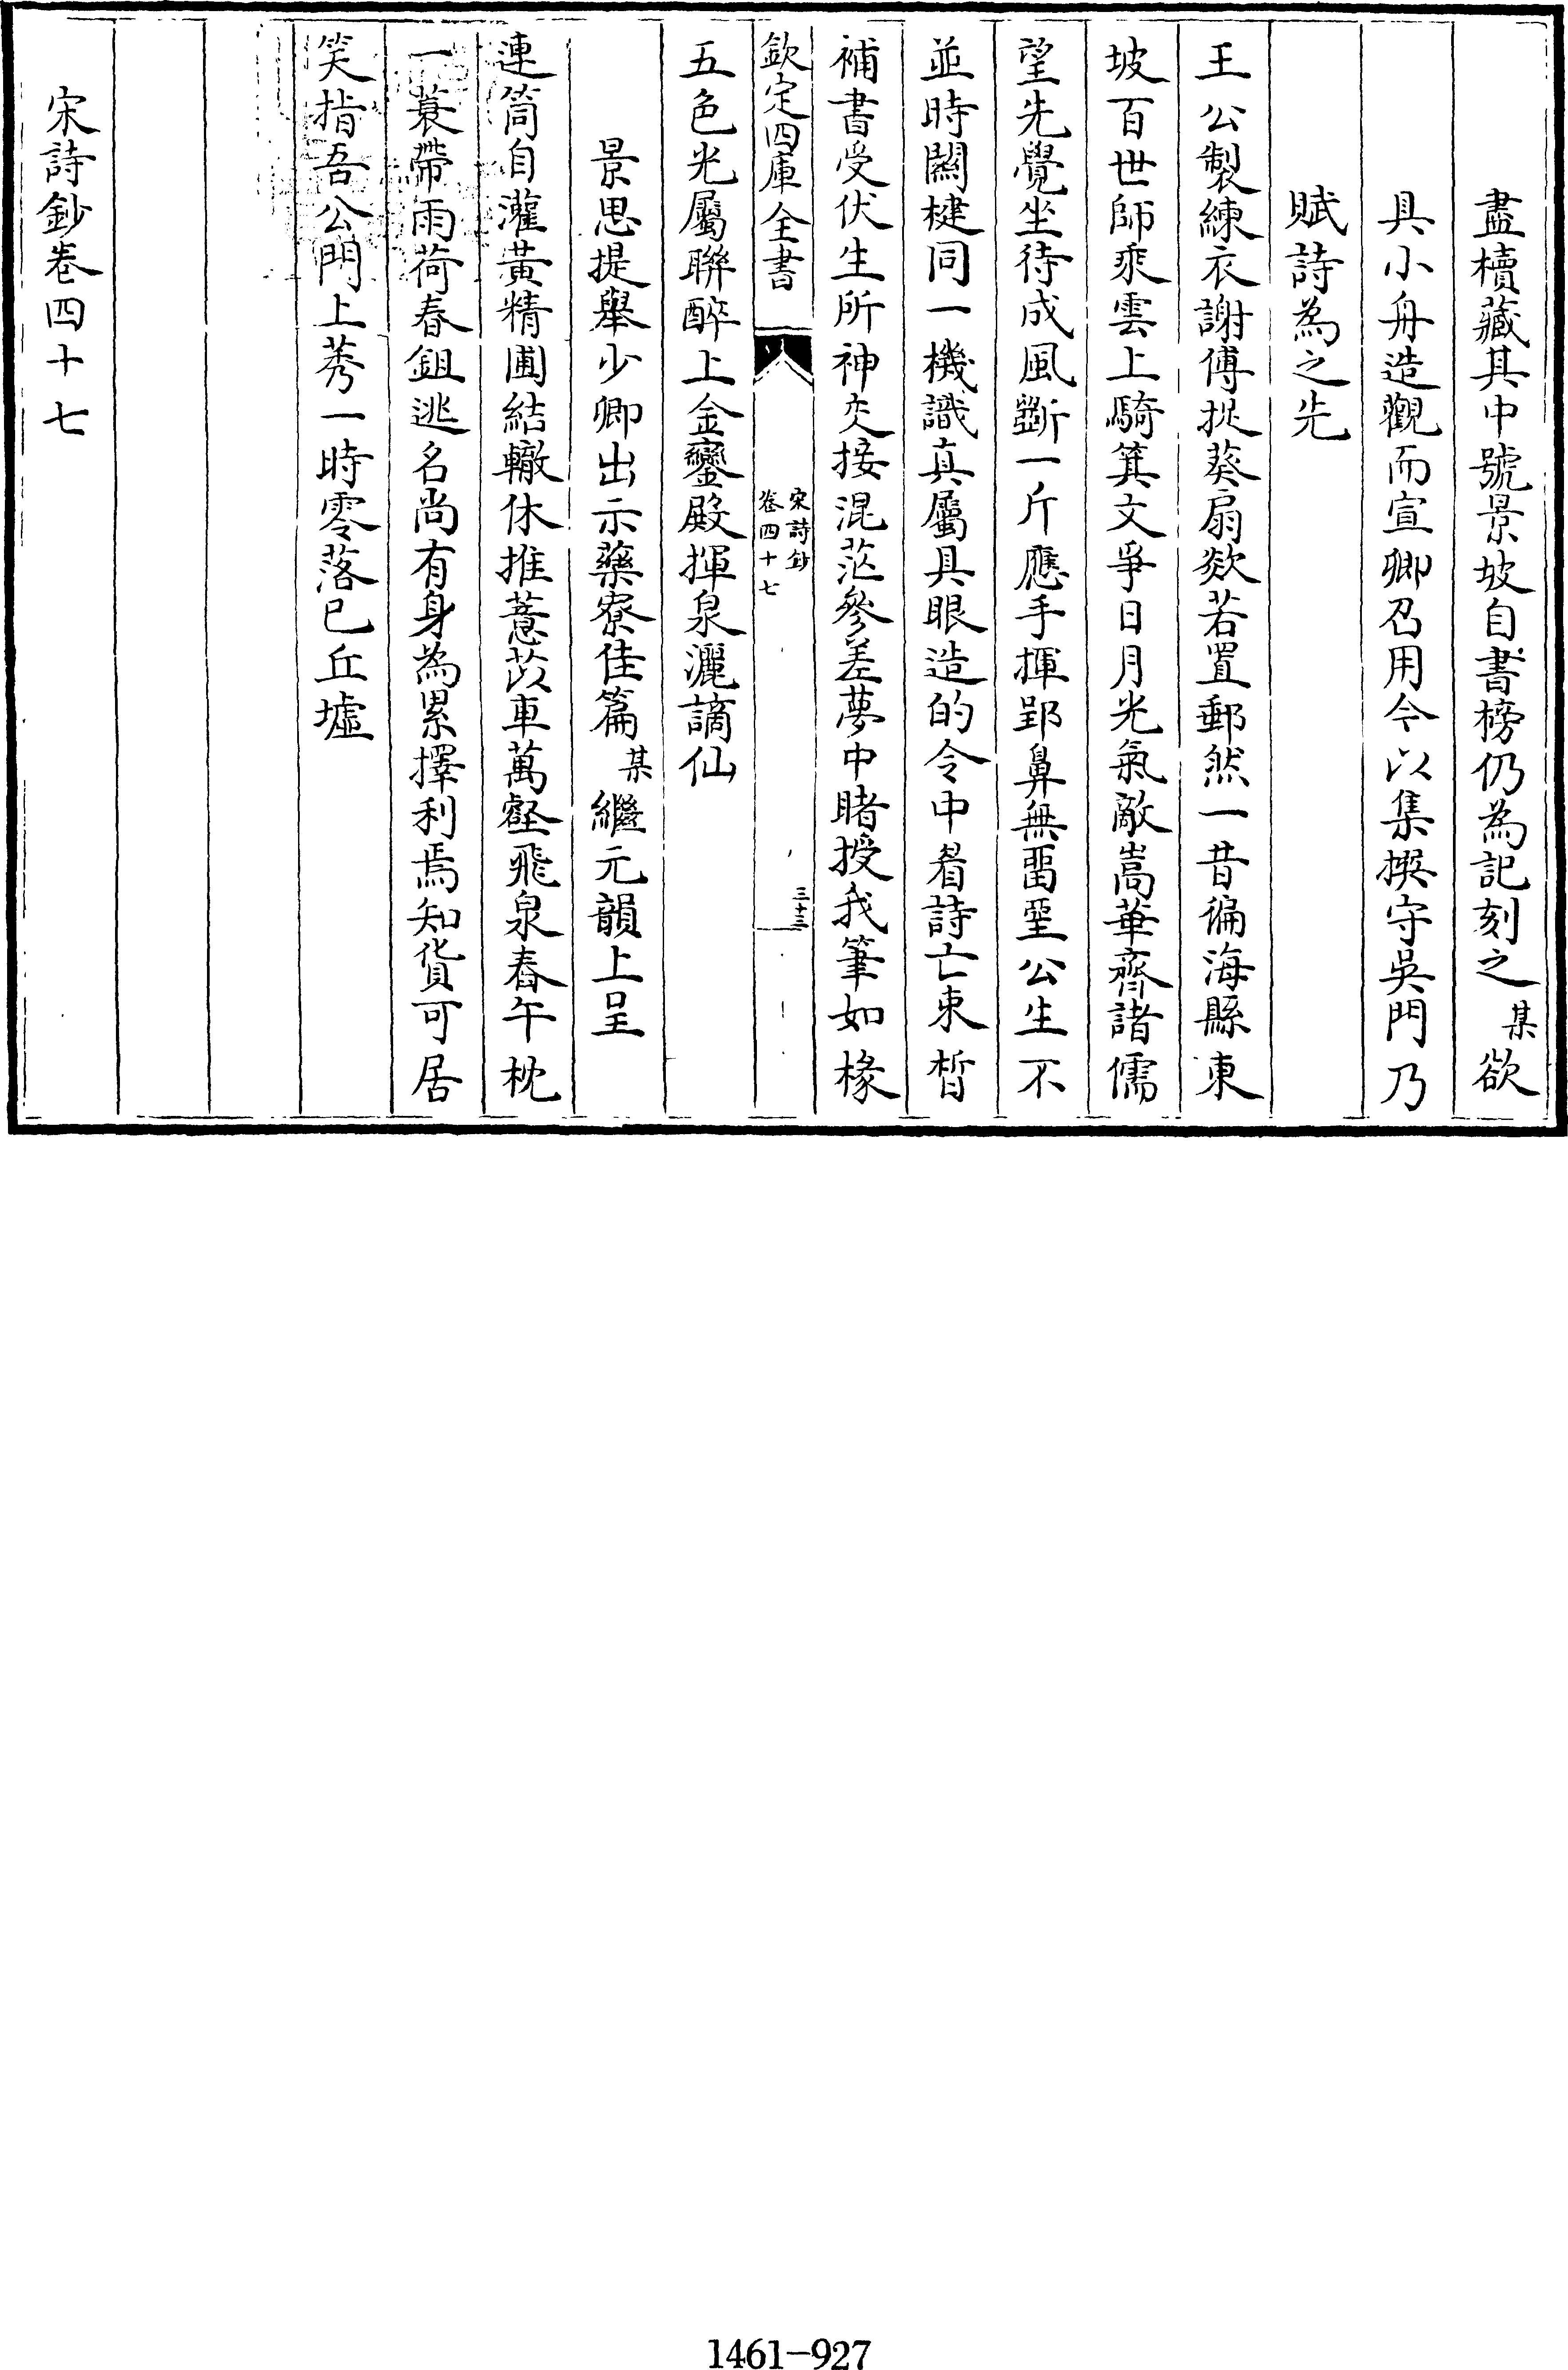 盡櫝藏其中號景坡自書榜仍為記刻之某欲
具小舟造觀而宣卿召用今以集撰守吳門乃
賦詩為之先
王公製練衣謝傅捉葵扇欻若置郵然一昔徧海縣東
坡百世師乘雲上騎箕文爭日月光氣敵嵩華齊諸儒
望先覺坐待成風斲一斤應手揮郢鼻無留堊公生不
並時關楗同一機識真屬具眼造的令中眉詩亡束晳
補書受伏生所神交接混茫參差夢中睹授我筆如椽
欽定四庫全書
宋詩鈔
卷四十七
三十三
五色光屬聯醉上金鑾殿揮泉灑謫仙
景思提舉少卿出示藥寮佳篇某繼元韻上呈
連筒自灌黃精圃結轍休推薏苡車萬壑飛泉舂午枕
一蓑帶雨荷春鉏逃名尚有身為累擇利焉知貨可居
笑指吾公門上莠一時零落已丘墟
宋詩鈔卷四十七
1461-927